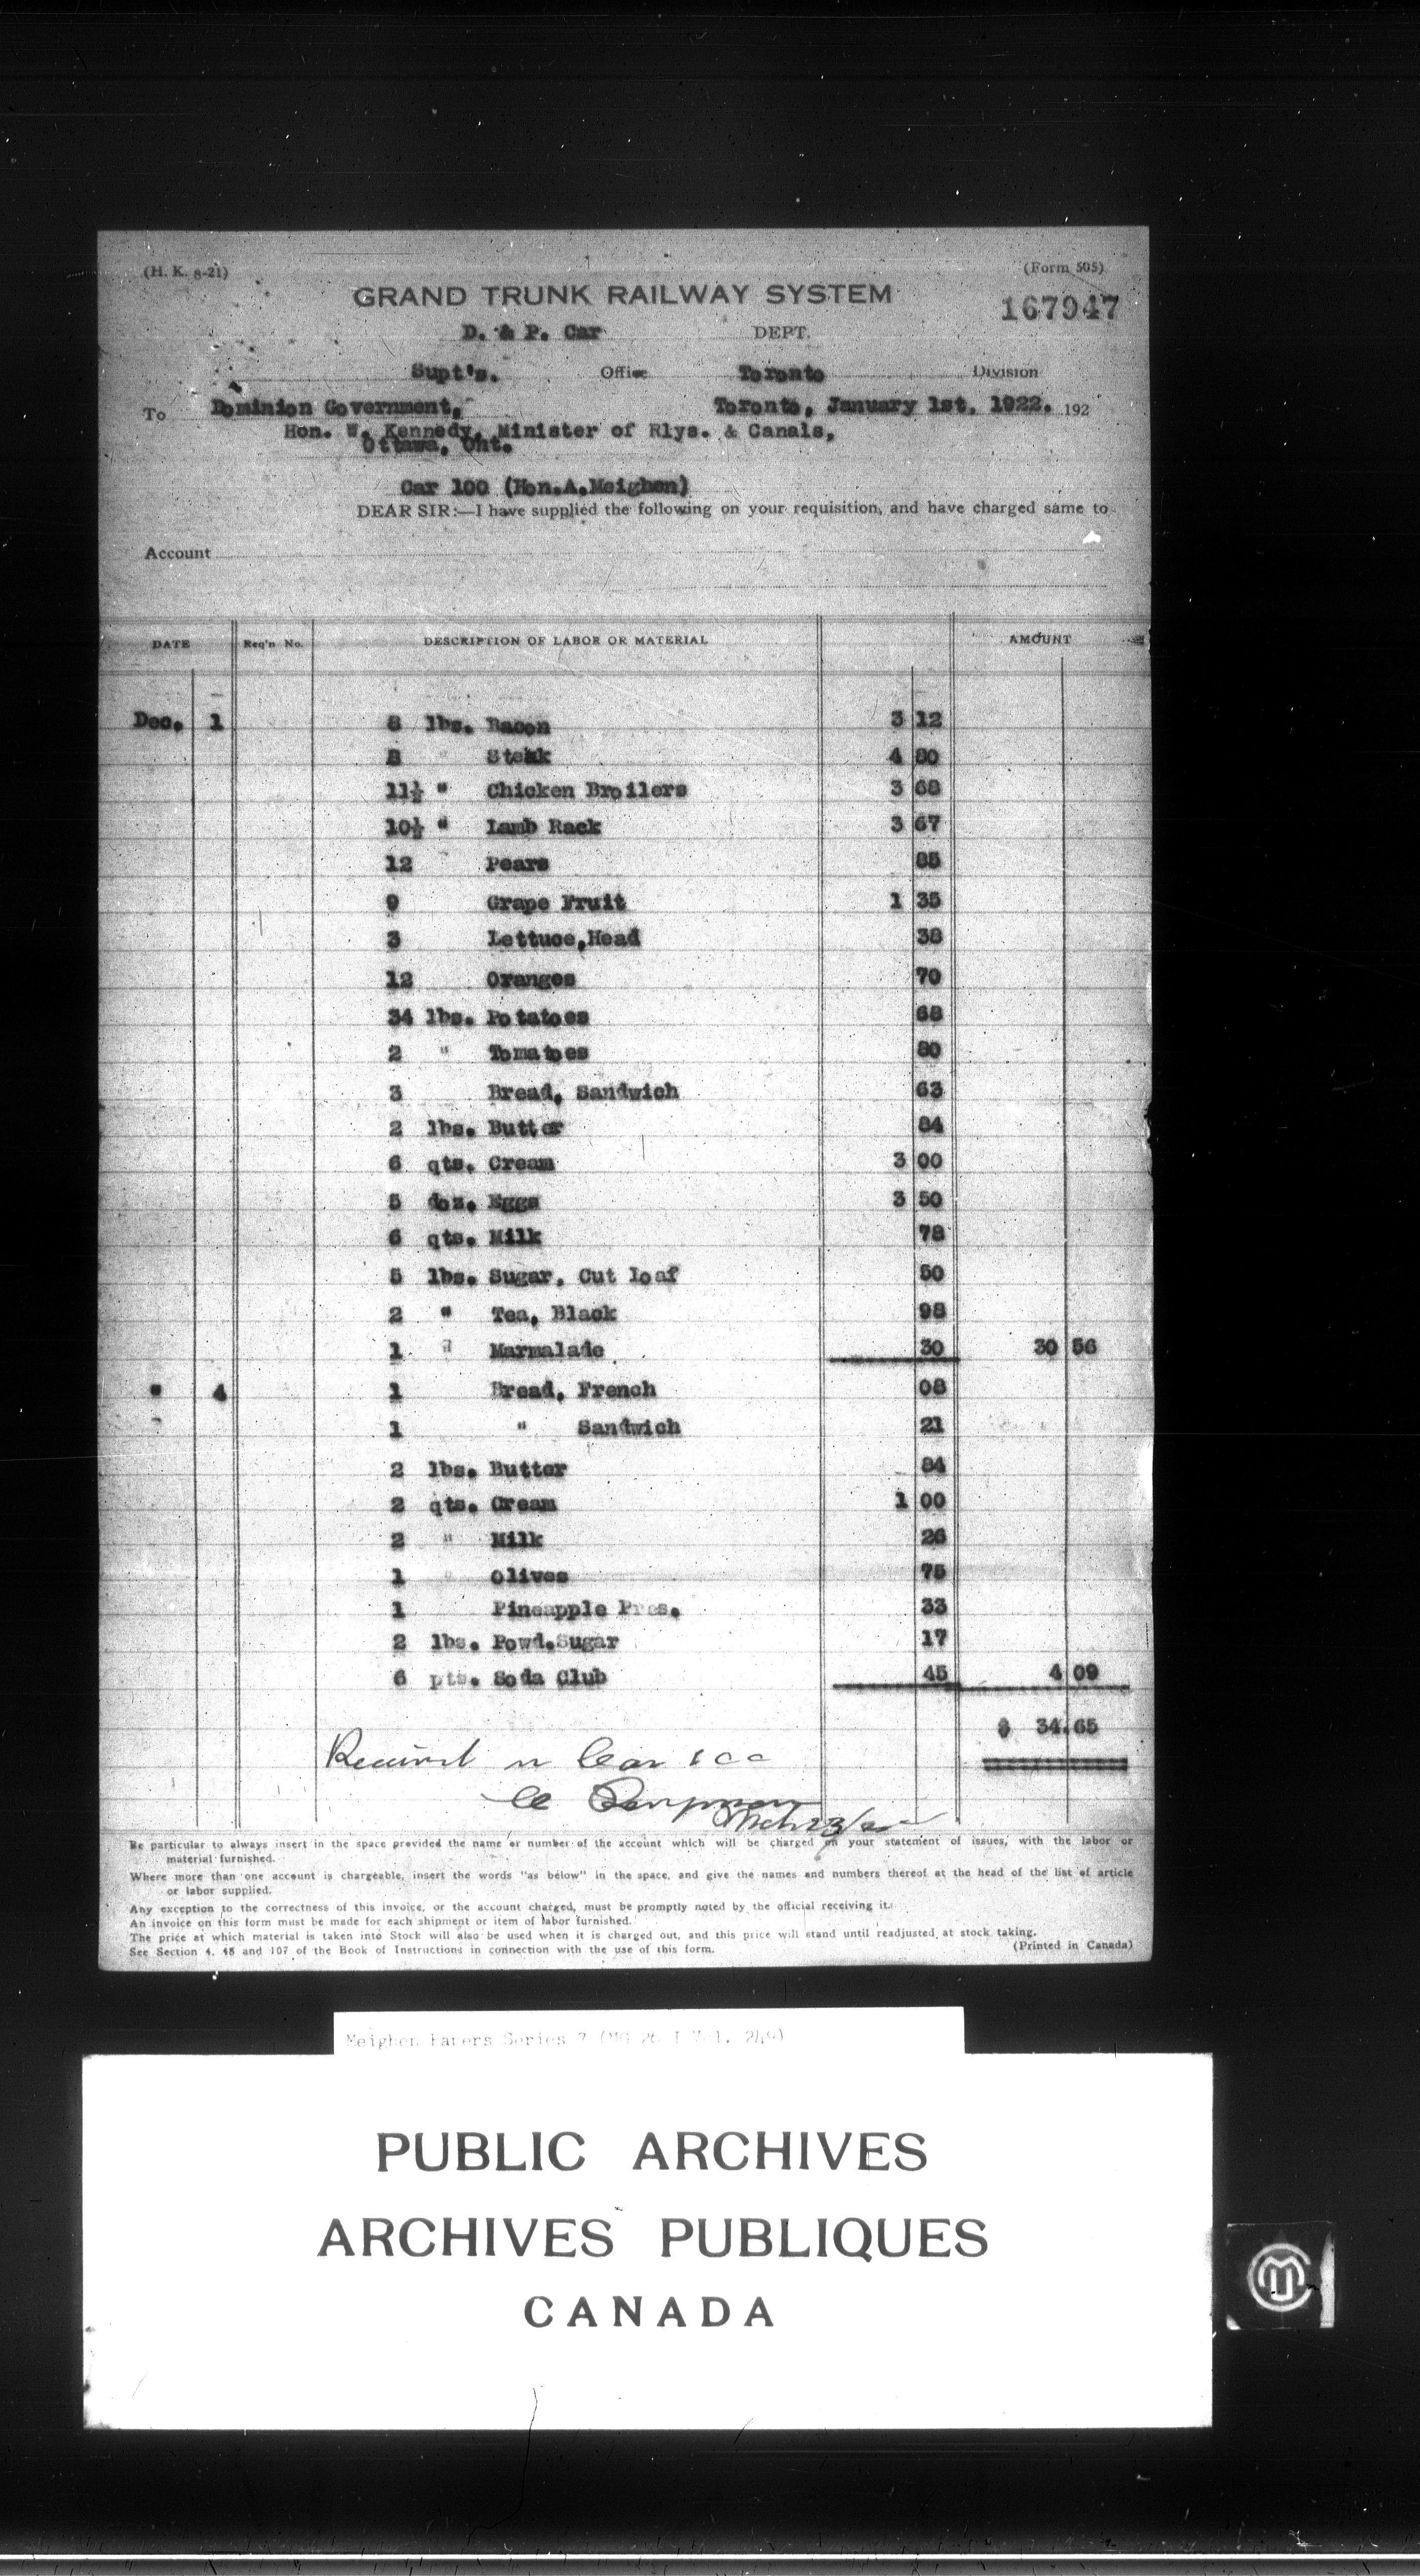 (H. K. 8-21)
(Form 505)
GRAND TRUNK RAILWAY SYSTEM
167947
D. & P. Car DEPT.
Supt's. Office Toronto Division
To Dominion Government, Toronto, January 1st, 1922. 192
Hon. W. Kennedy, Minister of Rlys. & Canals,
Ottawa, Ont.
Car 100 (Hon.A.Meighen)
DEAR SIR:—I have supplied the following on your requisition, and have charged same to
Account
DATE Req'n No. DESCRIPTION OF LABOR OR MATERIAL AMOUNT
Dec. 1 8 lbs. Bacon 3 12
8 " Steak 4 80
11½ " Chicken Broilers 3 68
10½ " Lamb Rack 3 67
12 Pears 85
9 Grape Fruit 1 35
3 Lettuce,Head 38
12 Oranges 70
34 lbs. Potatoes 68
2 " Tomatoes 80
3 Bread, Sandwich 63
2 lbs. Butter 84
6 qts. Cream 3 00
5 doz. Eggs 3 50
6 qts. Milk 78
5 lbs. Sugar, Cut loaf 50
2 " Tea, Black 98
1 " Marmalade 30 30 56
" 4 1 Bread, French 08
1 " Sandwich 21
2 lbs. Butter 84
2 qts. Cream 1 00
2 " Milk 26
1 " Olives 75
1 Pineapple Pres. 33
2 lbs. Powd.Sugar 17
6 pts. Soda Club 45 4 09
$ 34.65
Received in Car 100
Be particular to always insert in the space provided the name or number of the account which will be charged on your statement of issues, with the labor or
material furnished.
Where more than one account is chargeable, insert the words "as below" in the space, and give the names and numbers thereof at the head of the list of article
or labor supplied.
Any exception to the correctness of this invoice, or the account charged, must be promptly noted by the official receiving it.
An invoice on this form must be made for each shipment or item of labor furnished.
The price at which material is taken into Stock will also be used when it is charged out, and this price will stand until readjusted at stock taking.
See Section 4, 45 and 107 of the Book of Instructions in connection with the use of this form.
(Printed in Canada)
Meighen Papers Series 7 (MG 26 I Vol. 249)
PUBLIC ARCHIVES
ARCHIVES PUBLIQUES
CANADA